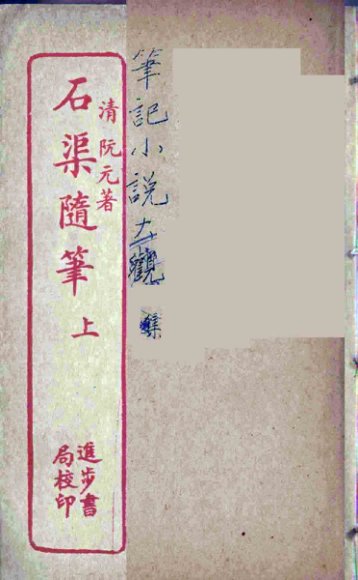 筆記小説大觀
清 阮元著
石渠隨筆 上
進步書
局校印